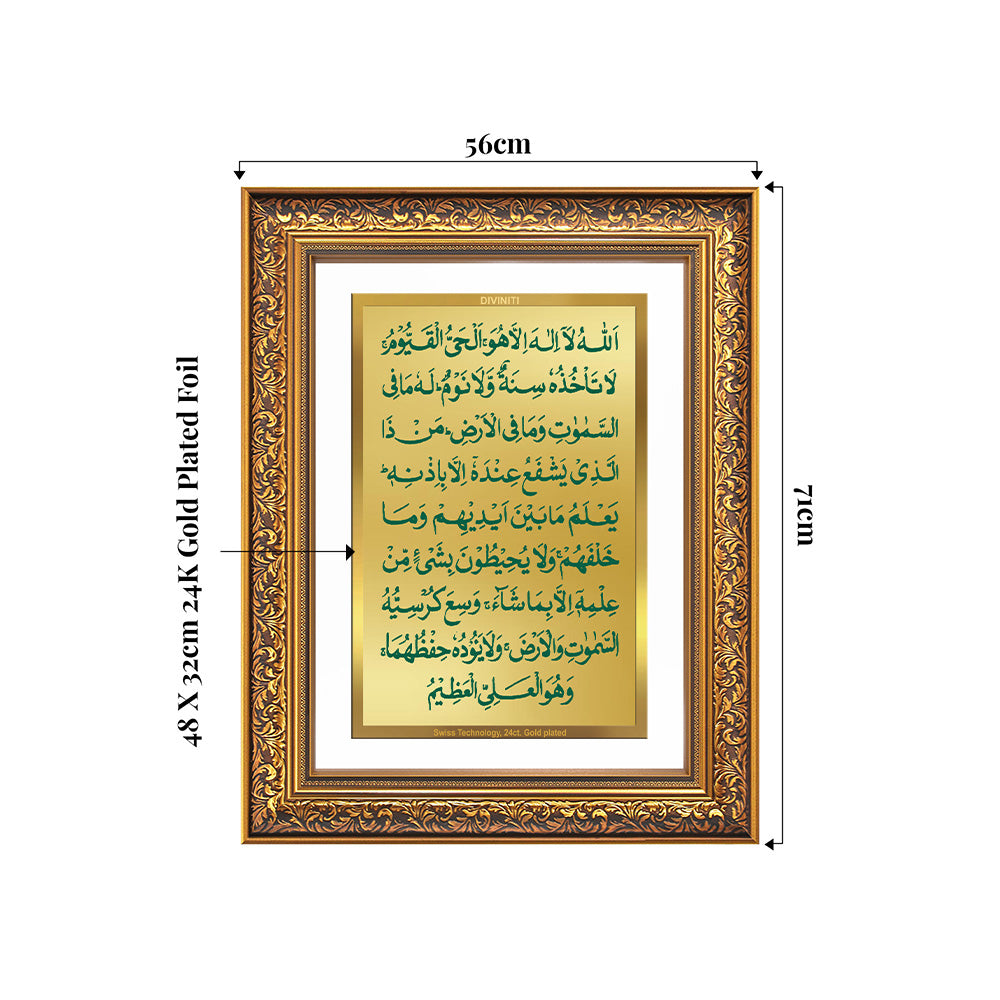 56cm
DIVINITI
اَللّٰهُ لَآ اِلٰهَ اِلَّا هُوَ ۚ اَلْحَىُّ الْقَيُّوْمُ ۚ
لَا تَاْخُذُهٗ سِنَةٌ وَّلَا نَوْمٌ ؕ لَهٗ مَا فِى
السَّمٰوٰتِ وَمَا فِى الْاَرْضِ ؕ مَنْ ذَا
الَّذِىْ يَشْفَعُ عِنْدَهٗۤ اِلَّا بِاِذْنِهٖ ؕ
يَعْلَمُ مَا بَيْنَ اَيْدِيْهِمْ وَمَا
خَلْفَهُمْ ۚ وَلَا يُحِيْطُوْنَ بِشَىْءٍ مِّنْ
عِلْمِهٖۤ اِلَّا بِمَا شَآءَ ۚ وَسِعَ كُرْسِيُّهُ
السَّمٰوٰتِ وَالْاَرْضَ ۚ وَلَا يَئُوْدُهٗ حِفْظُهُمَا ۚ
وَهُوَ الْعَلِىُّ الْعَظِيْمُ
Swiss Technology, 24ct. Gold plated
48 X 32cm 24K Gold Plated Foil
71cm